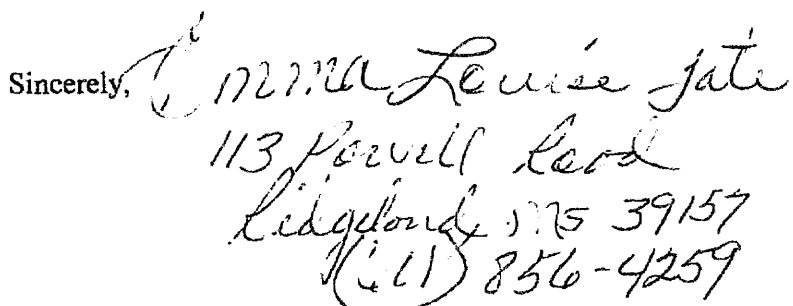 Sincerely, Emma Louise Tate
113 Powell Road
Ridgeland, MS 39157
(601) 856-4259